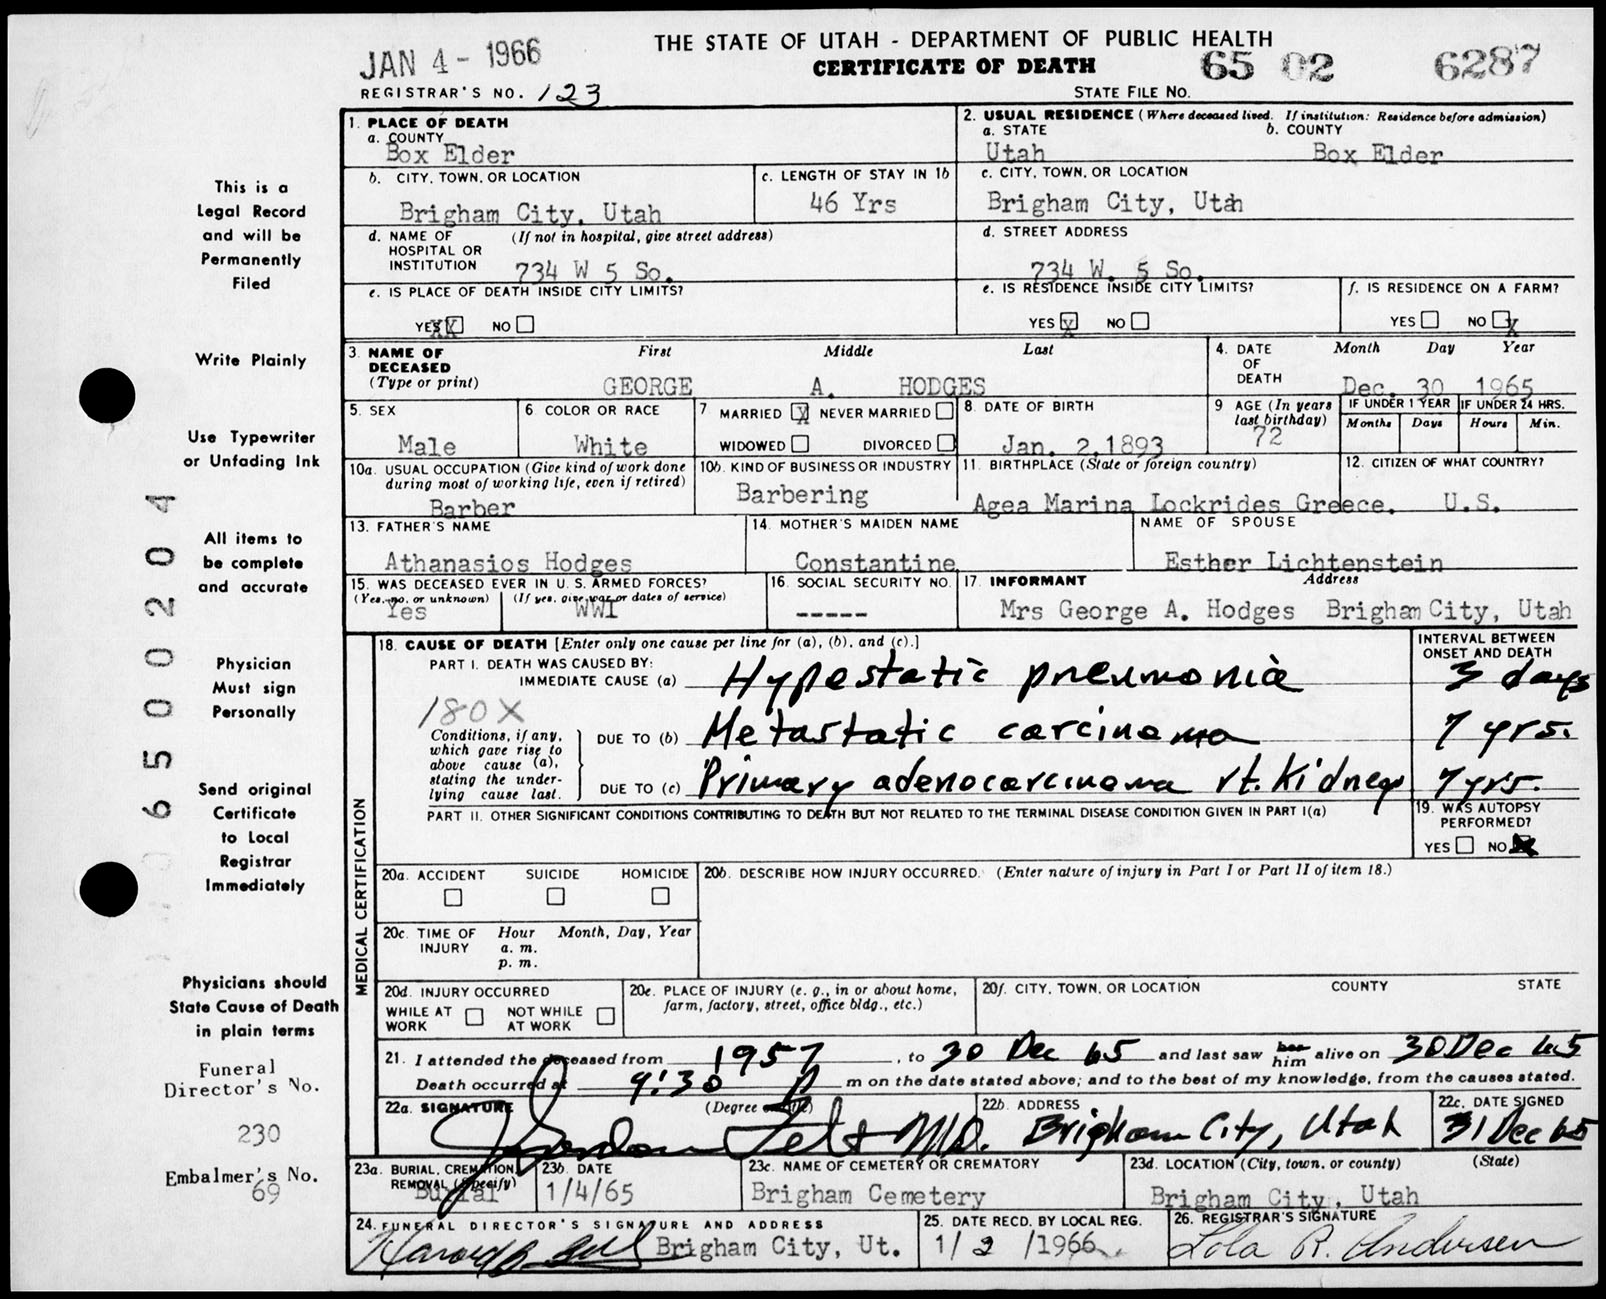 JAN 4 - 1966
THE STATE OF UTAH - DEPARTMENT OF PUBLIC HEALTH
CERTIFICATE OF DEATH
65 02 6287
REGISTRAR'S NO. 123
STATE FILE NO.
1. PLACE OF DEATH
a. COUNTY
Box Elder
2. USUAL RESIDENCE (Where deceased lived. If institution: Residence before admission)
a. STATE b. COUNTY
Utah Box Elder
b. CITY, TOWN, OR LOCATION
Brigham City, Utah
c. LENGTH OF STAY IN 1b
46 Yrs
c. CITY, TOWN, OR LOCATION
Brigham City, Utah
d. NAME OF HOSPITAL OR INSTITUTION (If not in hospital, give street address)
734 W 5 So.
d. STREET ADDRESS
734 W. 5 So.
e. IS PLACE OF DEATH INSIDE CITY LIMITS?
YES XX NO
e. IS RESIDENCE INSIDE CITY LIMITS?
YES X NO
f. IS RESIDENCE ON A FARM?
YES NO X
3. NAME OF DECEASED (Type or print)
First Middle Last
GEORGE A. HODGES
4. DATE OF DEATH
Month Day Year
Dec. 30 1965
5. SEX
Male
6 COLOR OR RACE
White
7 MARRIED X NEVER MARRIED
WIDOWED DIVORCED
8. DATE OF BIRTH
Jan. 2,1893
9 AGE (In years last birthday)
72
IF UNDER 1 YEAR
Months Days
IF UNDER 24 HRS.
Hours Min.
10a. USUAL OCCUPATION (Give kind of work done during most of working life, even if retired)
Barber
10b. KIND OF BUSINESS OR INDUSTRY
Barbering
11. BIRTHPLACE (State or foreign country)
Agea Marina Lockrides Greece.
12. CITIZEN OF WHAT COUNTRY?
U.S.
13. FATHER'S NAME
Athanasios Hodges
14. MOTHER'S MAIDEN NAME
Constantine
NAME OF SPOUSE
Esther Lichtenstein
15. WAS DECEASED EVER IN U.S. ARMED FORCES?
(Yes, no, or unknown) (If yes, give war or dates of service)
Yes WWI
16. SOCIAL SECURITY NO.
-----
17. INFORMANT Address
Mrs George A. Hodges Brigham City, Utah
18. CAUSE OF DEATH [Enter only one cause per line for (a), (b), and (c).]
INTERVAL BETWEEN ONSET AND DEATH
PART I. DEATH WAS CAUSED BY:
IMMEDIATE CAUSE (a) Hypestatic pneumonia 3 days
180X
Conditions, if any, which gave rise to above cause (a), stating the underlying cause last.
DUE TO (b) Metastatic carcinoma 7 yrs.
DUE TO (c) Primary adenocarcinoma rt. Kidney 7 yrs.
PART II. OTHER SIGNIFICANT CONDITIONS CONTRIBUTING TO DEATH BUT NOT RELATED TO THE TERMINAL DISEASE CONDITION GIVEN IN PART I(a)
19. WAS AUTOPSY PERFORMED?
YES NO X
MEDICAL CERTIFICATION
20a. ACCIDENT SUICIDE HOMICIDE
20b. DESCRIBE HOW INJURY OCCURRED. (Enter nature of injury in Part I or Part II of item 18.)
20c. TIME OF INJURY Hour Month, Day, Year
a. m.
p. m.
20d. INJURY OCCURRED
WHILE AT WORK NOT WHILE AT WORK
20e. PLACE OF INJURY (e. g., in or about home, farm, factory, street, office bldg., etc.)
20f. CITY, TOWN, OR LOCATION COUNTY STATE
21. I attended the deceased from 1957, to 30 Dec 65 and last saw her him alive on 30 Dec 65
Death occurred at 9:30 P m on the date stated above; and to the best of my knowledge, from the causes stated.
22a. SIGNATURE (Degree or title)
J Gordon Felt MD.
22b. ADDRESS
Brigham City, Utah
22c. DATE SIGNED
31 Dec 65
23a. BURIAL, CREMATION, REMOVAL (Specify)
Burial
23b. DATE
1/4/65
23c. NAME OF CEMETERY OR CREMATORY
Brigham Cemetery
23d. LOCATION (City, town, or county) (State)
Brigham City, Utah
24. FUNERAL DIRECTOR'S SIGNATURE AND ADDRESS
Harold B. Brigham City, Ut.
25. DATE RECD. BY LOCAL REG.
1/2/1966
26. REGISTRAR'S SIGNATURE
Lola R. Andersen
This is a
Legal Record
and will be
Permanently
Filed
Write Plainly
Use Typewriter
or Unfading Ink
All items to
be complete
and accurate
Physician
Must sign
Personally
Send original
Certificate
to Local
Registrar
Immediately
Physicians should
State Cause of Death
in plain terms
Funeral
Director's No.
230
Embalmer's No.
69
6500204